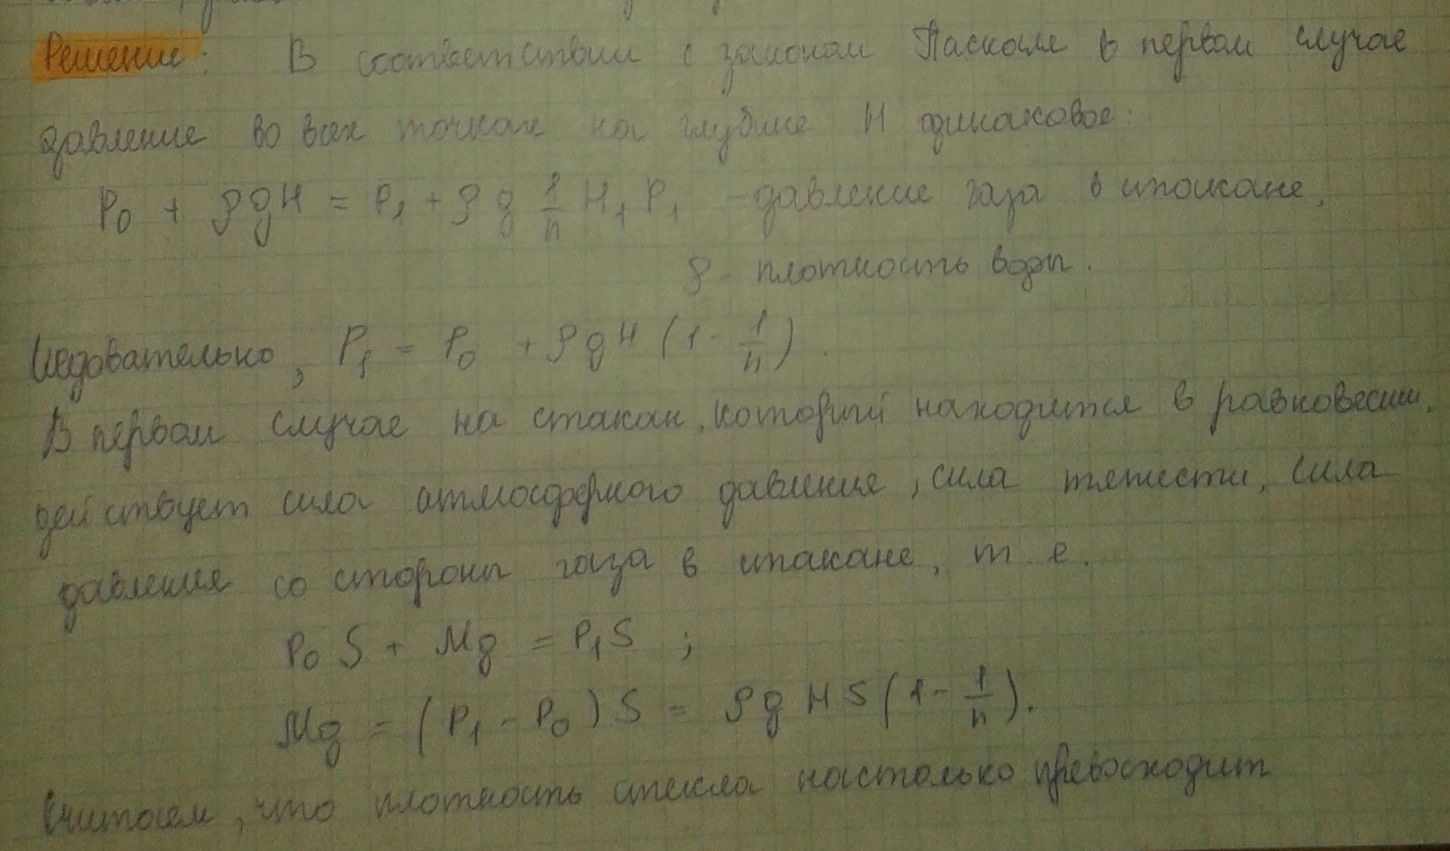 Решение: В соответствии с законом Паскаля в первом случае
давление во всех точках на глубине H одинаковое:
P₀ + ρgH = P₁ + ρg 1/n H, P₁ - давление газа в стакане,
ρ - плотность воды.
Следовательно, P₁ = P₀ + ρgH (1 - 1/n).
В первом случае на стакан, который находится в равновесии,
действует сила атмосферного давления, сила тяжести, сила
давления со стороны газа в стакане, т. е.
P₀ S + Mg = P₁ S ;
Mg = (P₁ - P₀) S = ρg H S (1 - 1/n).
Считаем, что плотность стекла настолько превосходит